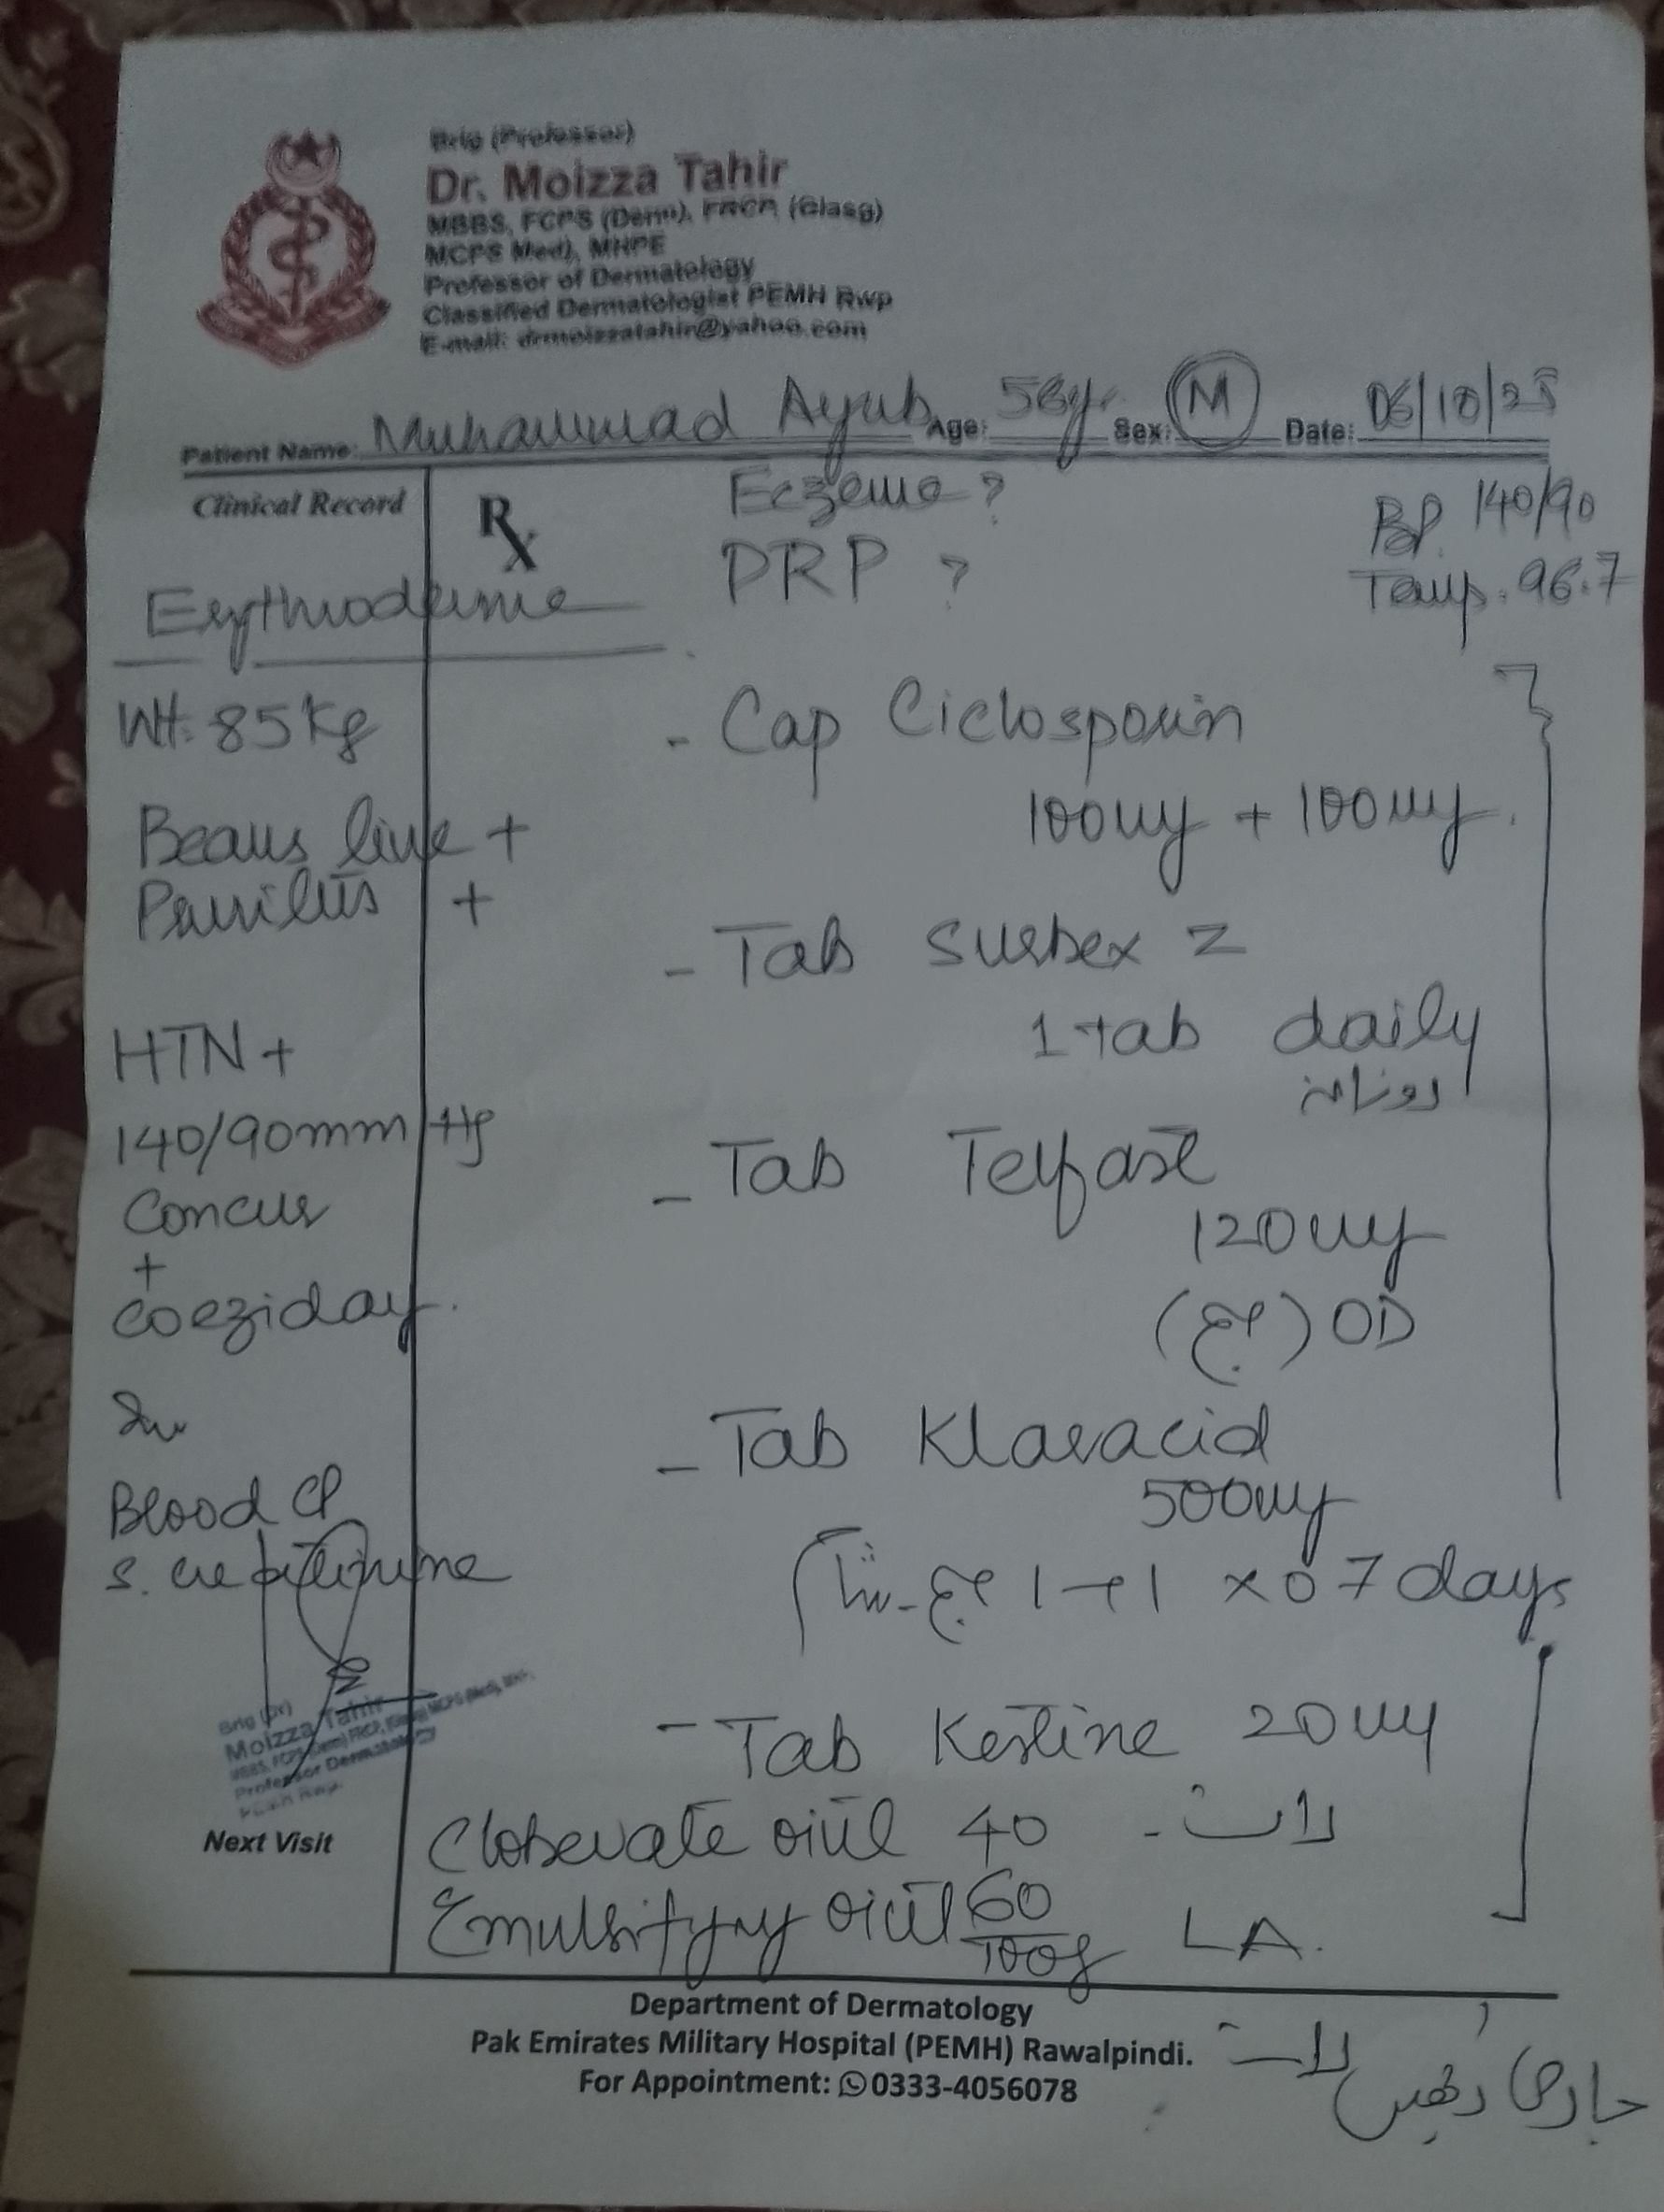 Brig (Professor)
Dr. Moizza Tahir
MBBS, FCPS (Derm), FRCP, (Glasg)
MCPS Med), MHPE
Professor of Dermatology
Classified Dermatologist PEMH Rwp
E-mail: drmoizzatahir@yahoo.com
Patient Name: Muhammad Ayub Age: 56y Sex: M Date: 06/10/25
Clinical Record
Rx
Eczema ?
PRP ?
BP. 140/90
Temp. 96.7
Erythroderma
Wt: 85kg
Beaus line +
Pruritis +
HTN +
140/90mm Hg
Concur
+
Coeziday.
Blood CP
- Cap Ciclosporin
100mg + 100mg.
- Tab Surbex Z
1 tab daily
روزانہ
- Tab Telfast
120mg
(صبح) OD
- Tab Klaracid
500mg
1+1 صبح - شام x 07 days
- Tab Kestine 20mg
رات -
Clobevate oint 40
Emulsifying oint 60
100g LA.
Brig (Dr)
Moizza Tahir
Professor Dermatology
Next Visit
Department of Dermatology
Pak Emirates Military Hospital (PEMH) Rawalpindi.
For Appointment: 0333-4056078
جاری رکھیں
رات